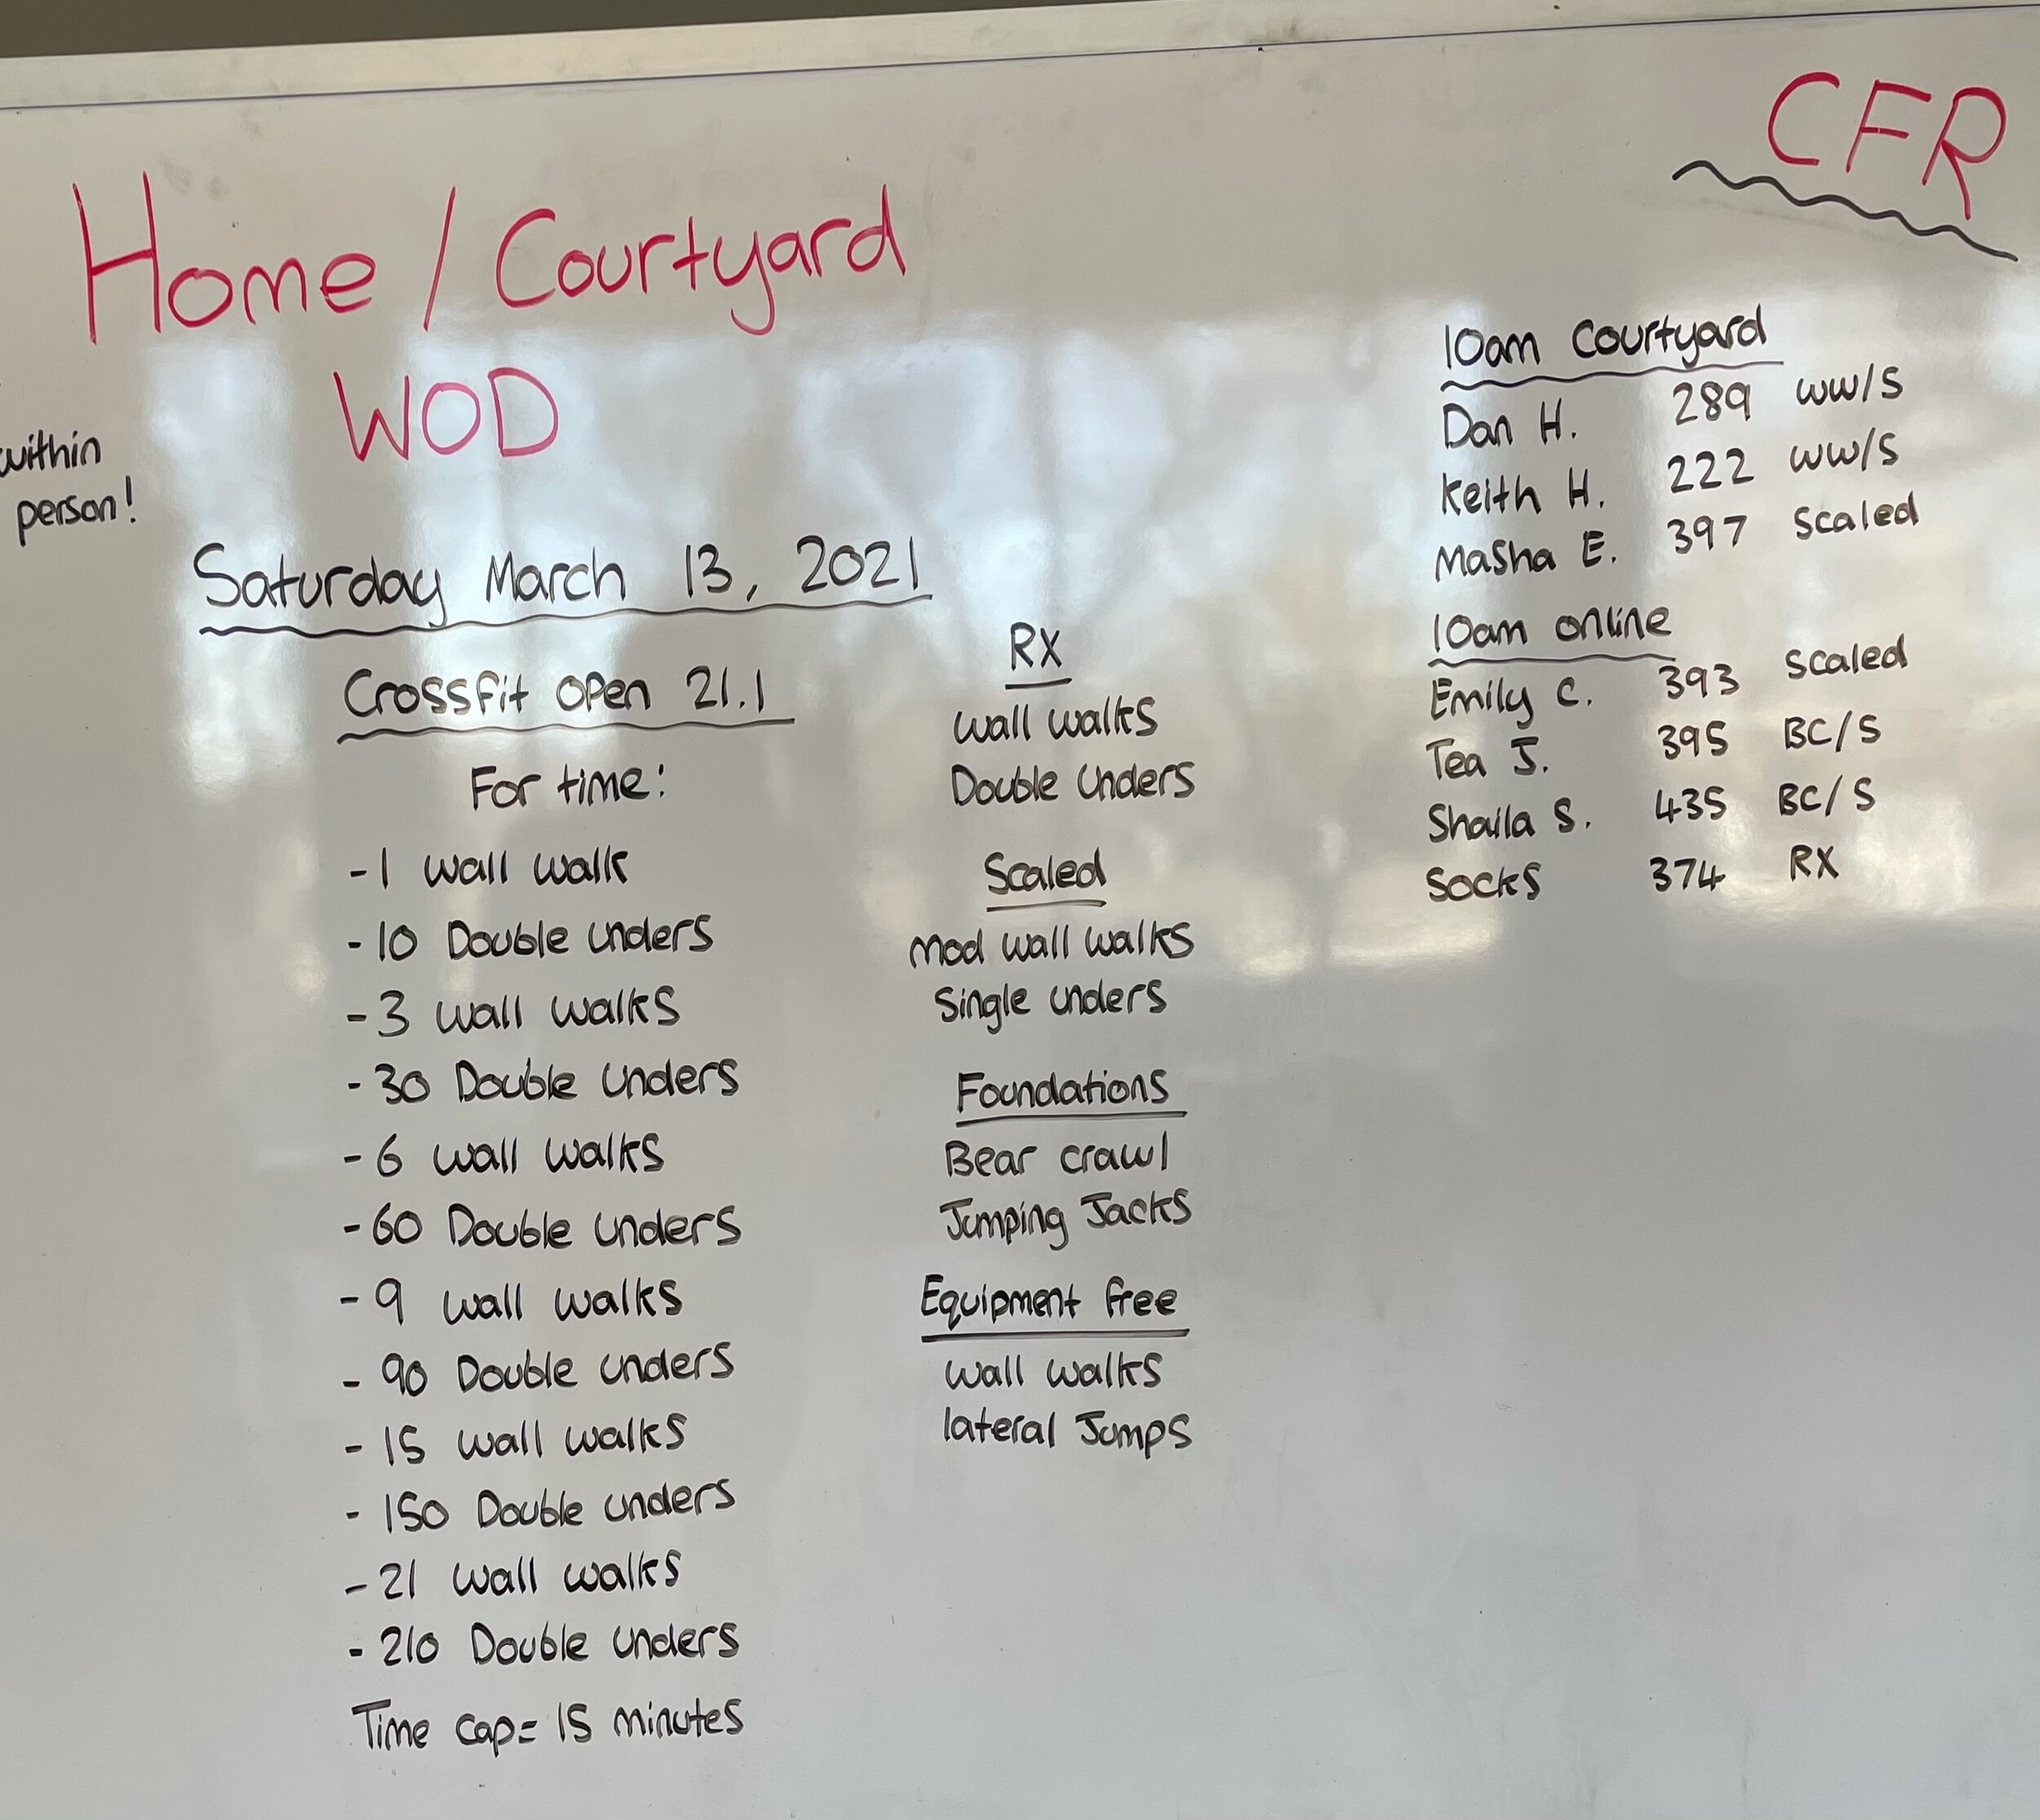 CFR
Home / Courtyard
WOD
within
person!
Saturday March 13, 2021
Crossfit open 21.1
For time:
-1 wall walk
-10 Double unders
-3 wall walks
-30 Double unders
-6 wall walks
-60 Double unders
-9 wall walks
-90 Double unders
-15 wall walks
-150 Double unders
-21 wall walks
-210 Double unders
Time cap= 15 minutes
RX
wall walks
Double unders
Scaled
mod wall walks
Single unders
Foundations
Bear crawl
Jumping Jacks
Equipment free
wall walks
lateral Jumps
10am Courtyard
Dan H. 289 WW/S
Keith H. 222 WW/S
Masha E. 397 Scaled
10am online
Emily C. 393 Scaled
Tea J. 395 BC/S
Shaila S. 435 BC/S
Socks 374 RX